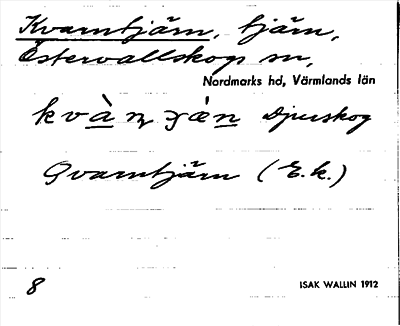 Kvarntjärn, tjärn,
Östervallskogs sn,
Nordmarks hd, Värmlands län
Djurskog
Qvarntjärn (E.k.)
8
ISAK WALLIN 1912